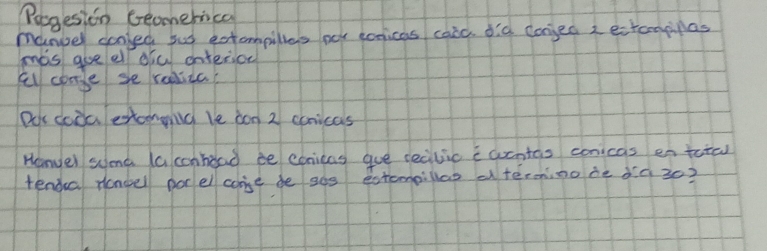 Progesión Geometrica
Manuel conjea sus estampillas por conicas cada día conjea 2 estampillas
más que el día anterior
El conje se realiza:
Por cada estampilla le don 2 conicas
Manuel suma la contidad de conicas que recivio ¿cuantas conicas en total
tendra Manuel por el conje de sus estampillas al termino de dia 30?